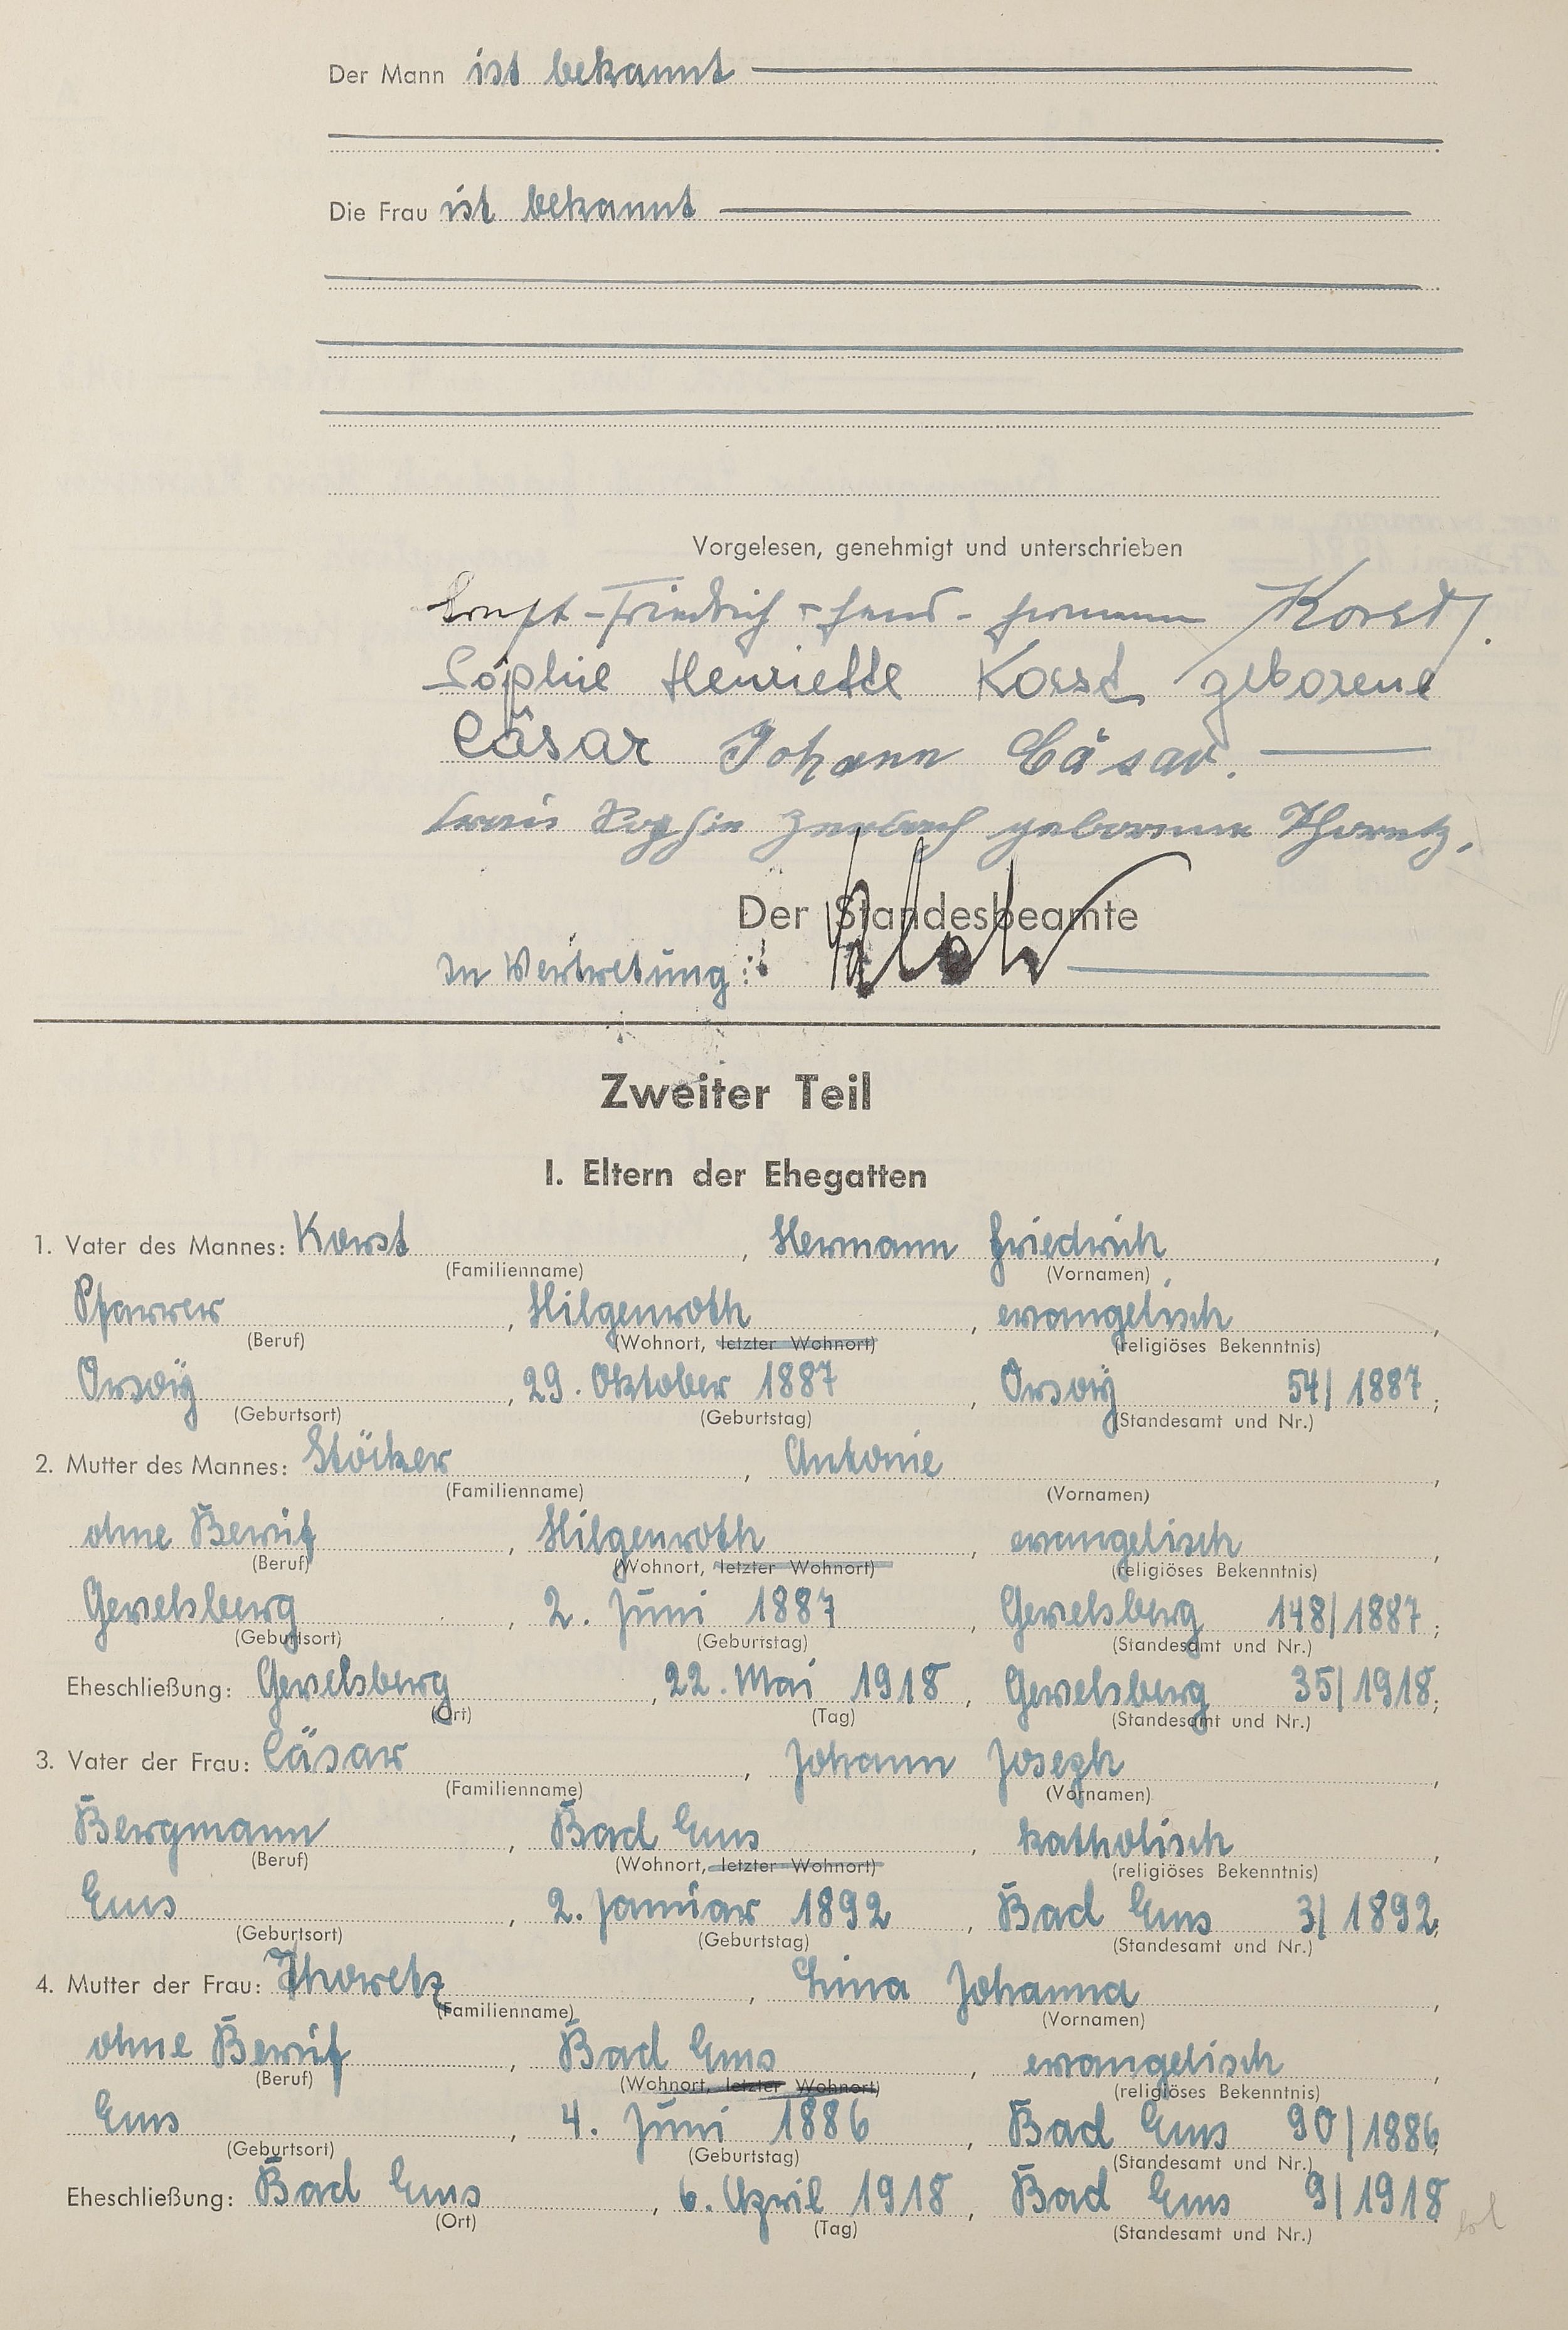 Der Mann ist bekannt
Die Frau ist bekannt
Vorgelesen, genehmigt und unterschrieben
Ernst-Friedrich - Hans - Hermann Korst.
Sophie Henriette Korst geborene
Cäsar Johann Cäsar.
Sophie geborene Thoretz.
Der Standesbeamte
In Vertretung:
Zweiter Teil
I. Eltern der Ehegatten
1. Vater des Mannes: Korst, Hermann Friedrich,
(Familienname) (Vornamen)
Pfarrer, Hilgenroth, evangelisch,
(Beruf) (Wohnort, letzter Wohnort) (religiöses Bekenntnis)
Orsoÿ, 29. Oktober 1887, Orsoÿ 54/1887;
(Geburtsort) (Geburtstag) (Standesamt und Nr.)
2. Mutter des Mannes: Stöcker, Antonie,
(Familienname) (Vornamen)
ohne Beruf, Hilgenroth, evangelisch,
(Beruf) (Wohnort, letzter Wohnort) (religiöses Bekenntnis)
Gevelsberg, 2. Juni 1887, Gevelsberg 148/1887;
(Geburtsort) (Geburtstag) (Standesamt und Nr.)
Eheschließung: Gevelsberg, 22. Mai 1918, Gevelsberg 35/1918;
(Ort) (Tag) (Standesamt und Nr.)
3. Vater der Frau: Cäsar, Johann Joseph,
(Familienname) (Vornamen)
Bergmann, Bad Ems, katholisch,
(Beruf) (Wohnort, letzter Wohnort) (religiöses Bekenntnis)
Ems, 2. Januar 1892, Bad Ems 3/1892;
(Geburtsort) (Geburtstag) (Standesamt und Nr.)
4. Mutter der Frau: Thoretz, Lina Johanna,
(Familienname) (Vornamen)
ohne Beruf, Bad Ems, evangelisch,
(Beruf) (Wohnort, letzter Wohnort) (religiöses Bekenntnis)
Ems, 4. Juni 1886, Bad Ems 90/1886;
(Geburtsort) (Geburtstag) (Standesamt und Nr.)
Eheschließung: Bad Ems, 6. April 1918, Bad Ems 9/1918
(Ort) (Tag) (Standesamt und Nr.)